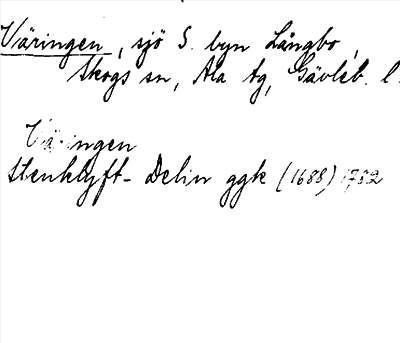 Väringen, sjö S. byn Långbo,
Skogs sn, Ala tg, Gävleb. l.
Väringen
Stenklyft- Delin ggk (1688) 1782